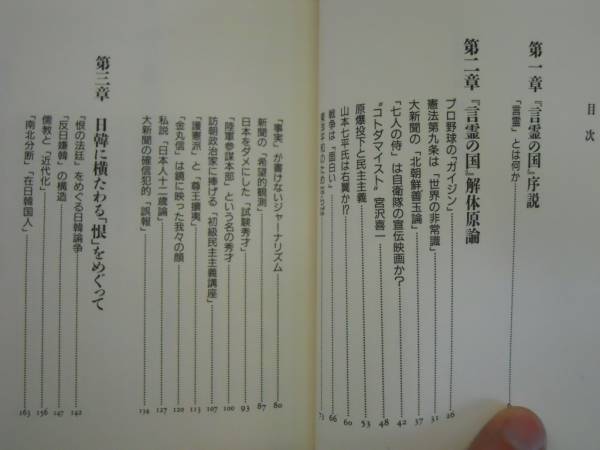 目次
第一章 『言霊の国』序説
「言霊」とは何か
第二章 『言霊の国』解体原論
プロ野球の「ガイジン」 26
憲法第九条は「世界の非常識」 31
大新聞の「北朝鮮善玉論」 37
「七人の侍」は自衛隊の宣伝映画か? 42
“コトダマイスト”宮沢喜一 48
原爆投下と民主主義 53
山本七平氏は右翼か!? 60
戦争は「面白い」 66
73
「事実」が書けないジャーナリズム 80
新聞の「希望的観測」 87
日本をダメにした「試験秀才」 93
「陸軍参謀本部」という名の秀才 100
訪朝政治家に捧げる「初級民主主義講座」 107
「護憲派」と「尊王攘夷」 113
「金丸信」は鏡に映った我々の顔 120
私説「日本人十二歳論」 127
大新聞の確信犯的「誤報」 134
第三章 日韓に横たわる「恨」をめぐって
「恨の法廷」をめぐる日韓論争 142
「反日嫌韓」の構造 147
儒教と「近代化」 156
「南北分断」「在日韓国人」 163